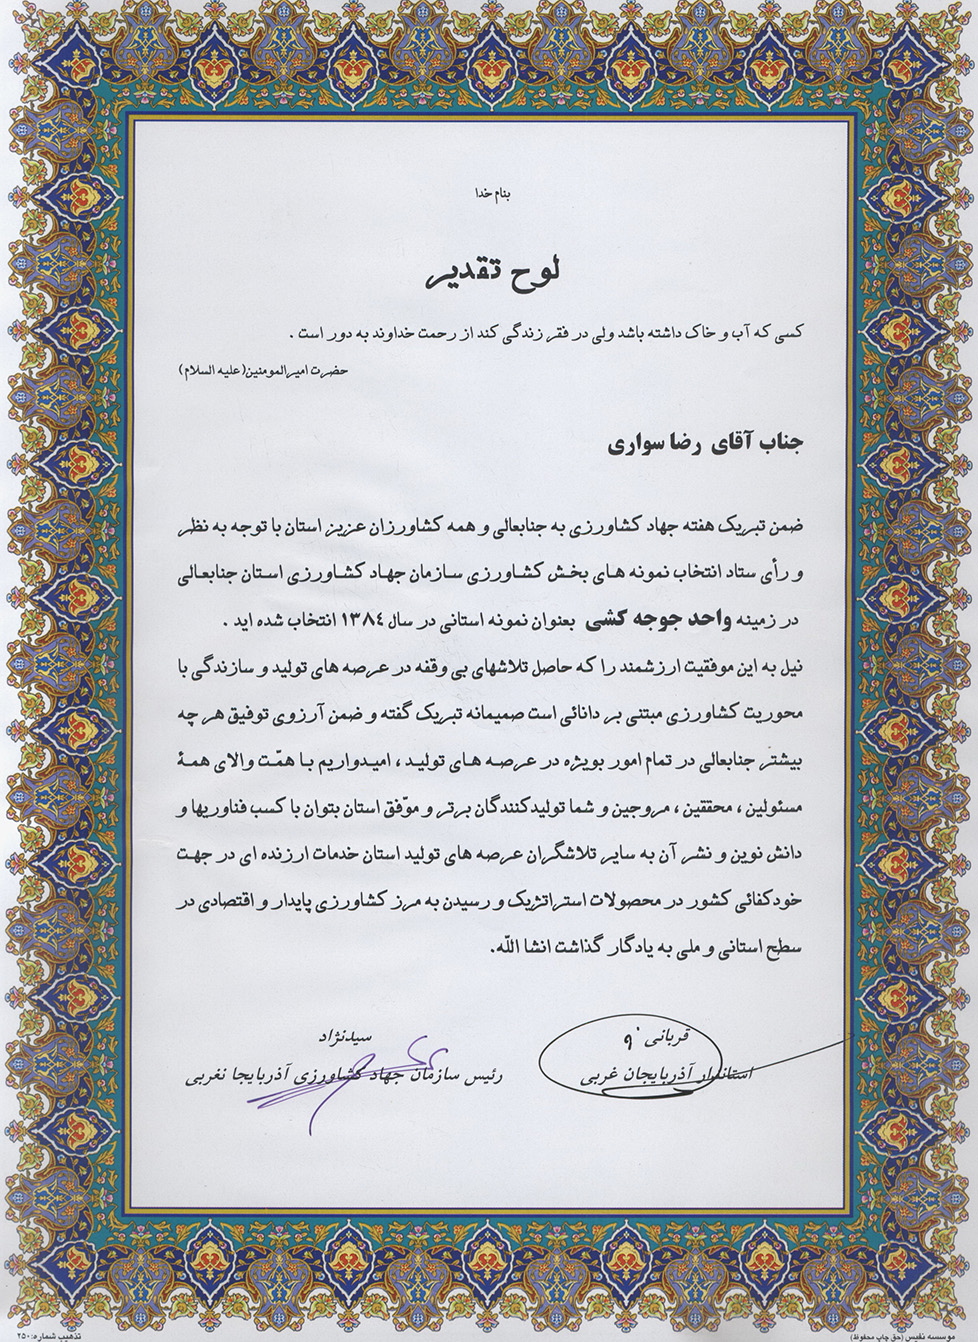 بنام خدا
لوح تقدیر
کسی که آب و خاک داشته باشد ولی در فقر زندگی کند از رحمت خداوند به دور است .
حضرت امیرالمومنین(علیه السلام)
جناب آقای رضا سواری
ضمن تبریک هفته جهاد کشاورزی به جنابعالی و همه کشاورزان عزیز استان با توجه به نظر
و رأی ستاد انتخاب نمونه های بخش کشاورزی سازمان جهاد کشاورزی استان جنابعالی
در زمینه واحد جوجه کشی بعنوان نمونه استانی در سال ۱۳۸٤ انتخاب شده اید .
نیل به این موفقیت ارزشمند را که حاصل تلاشهای بی وقفه در عرصه های تولید و سازندگی با
محوریت کشاورزی مبتنی بر دانائی است صمیمانه تبریک گفته و ضمن آرزوی توفیق هر چه
بیشتر جنابعالی در تمام امور بویژه در عرصه های تولید ، امیدواریم با همّت والای همهٔ
مسئولین ، محققین ، مروجین و شما تولیدکنندگان برتر و موّفق استان بتوان با کسب فناوریها و
دانش نوین و نشر آن به سایر تلاشگران عرصه های تولید استان خدمات ارزنده ای در جهت
خودکفائی کشور در محصولات استراتژیک و رسیدن به مرز کشاورزی پایدار و اقتصادی در
سطح استانی و ملی به یادگار گذاشت انشا اللّه.
قربانی
استاندار آذربایجان غربی
سیدنژاد
رئیس سازمان جهاد کشاورزی آذربایجا نغربی
موسسه نفیس (حق چاپ محفوظ)
تذهیب شماره: ۲۵۰